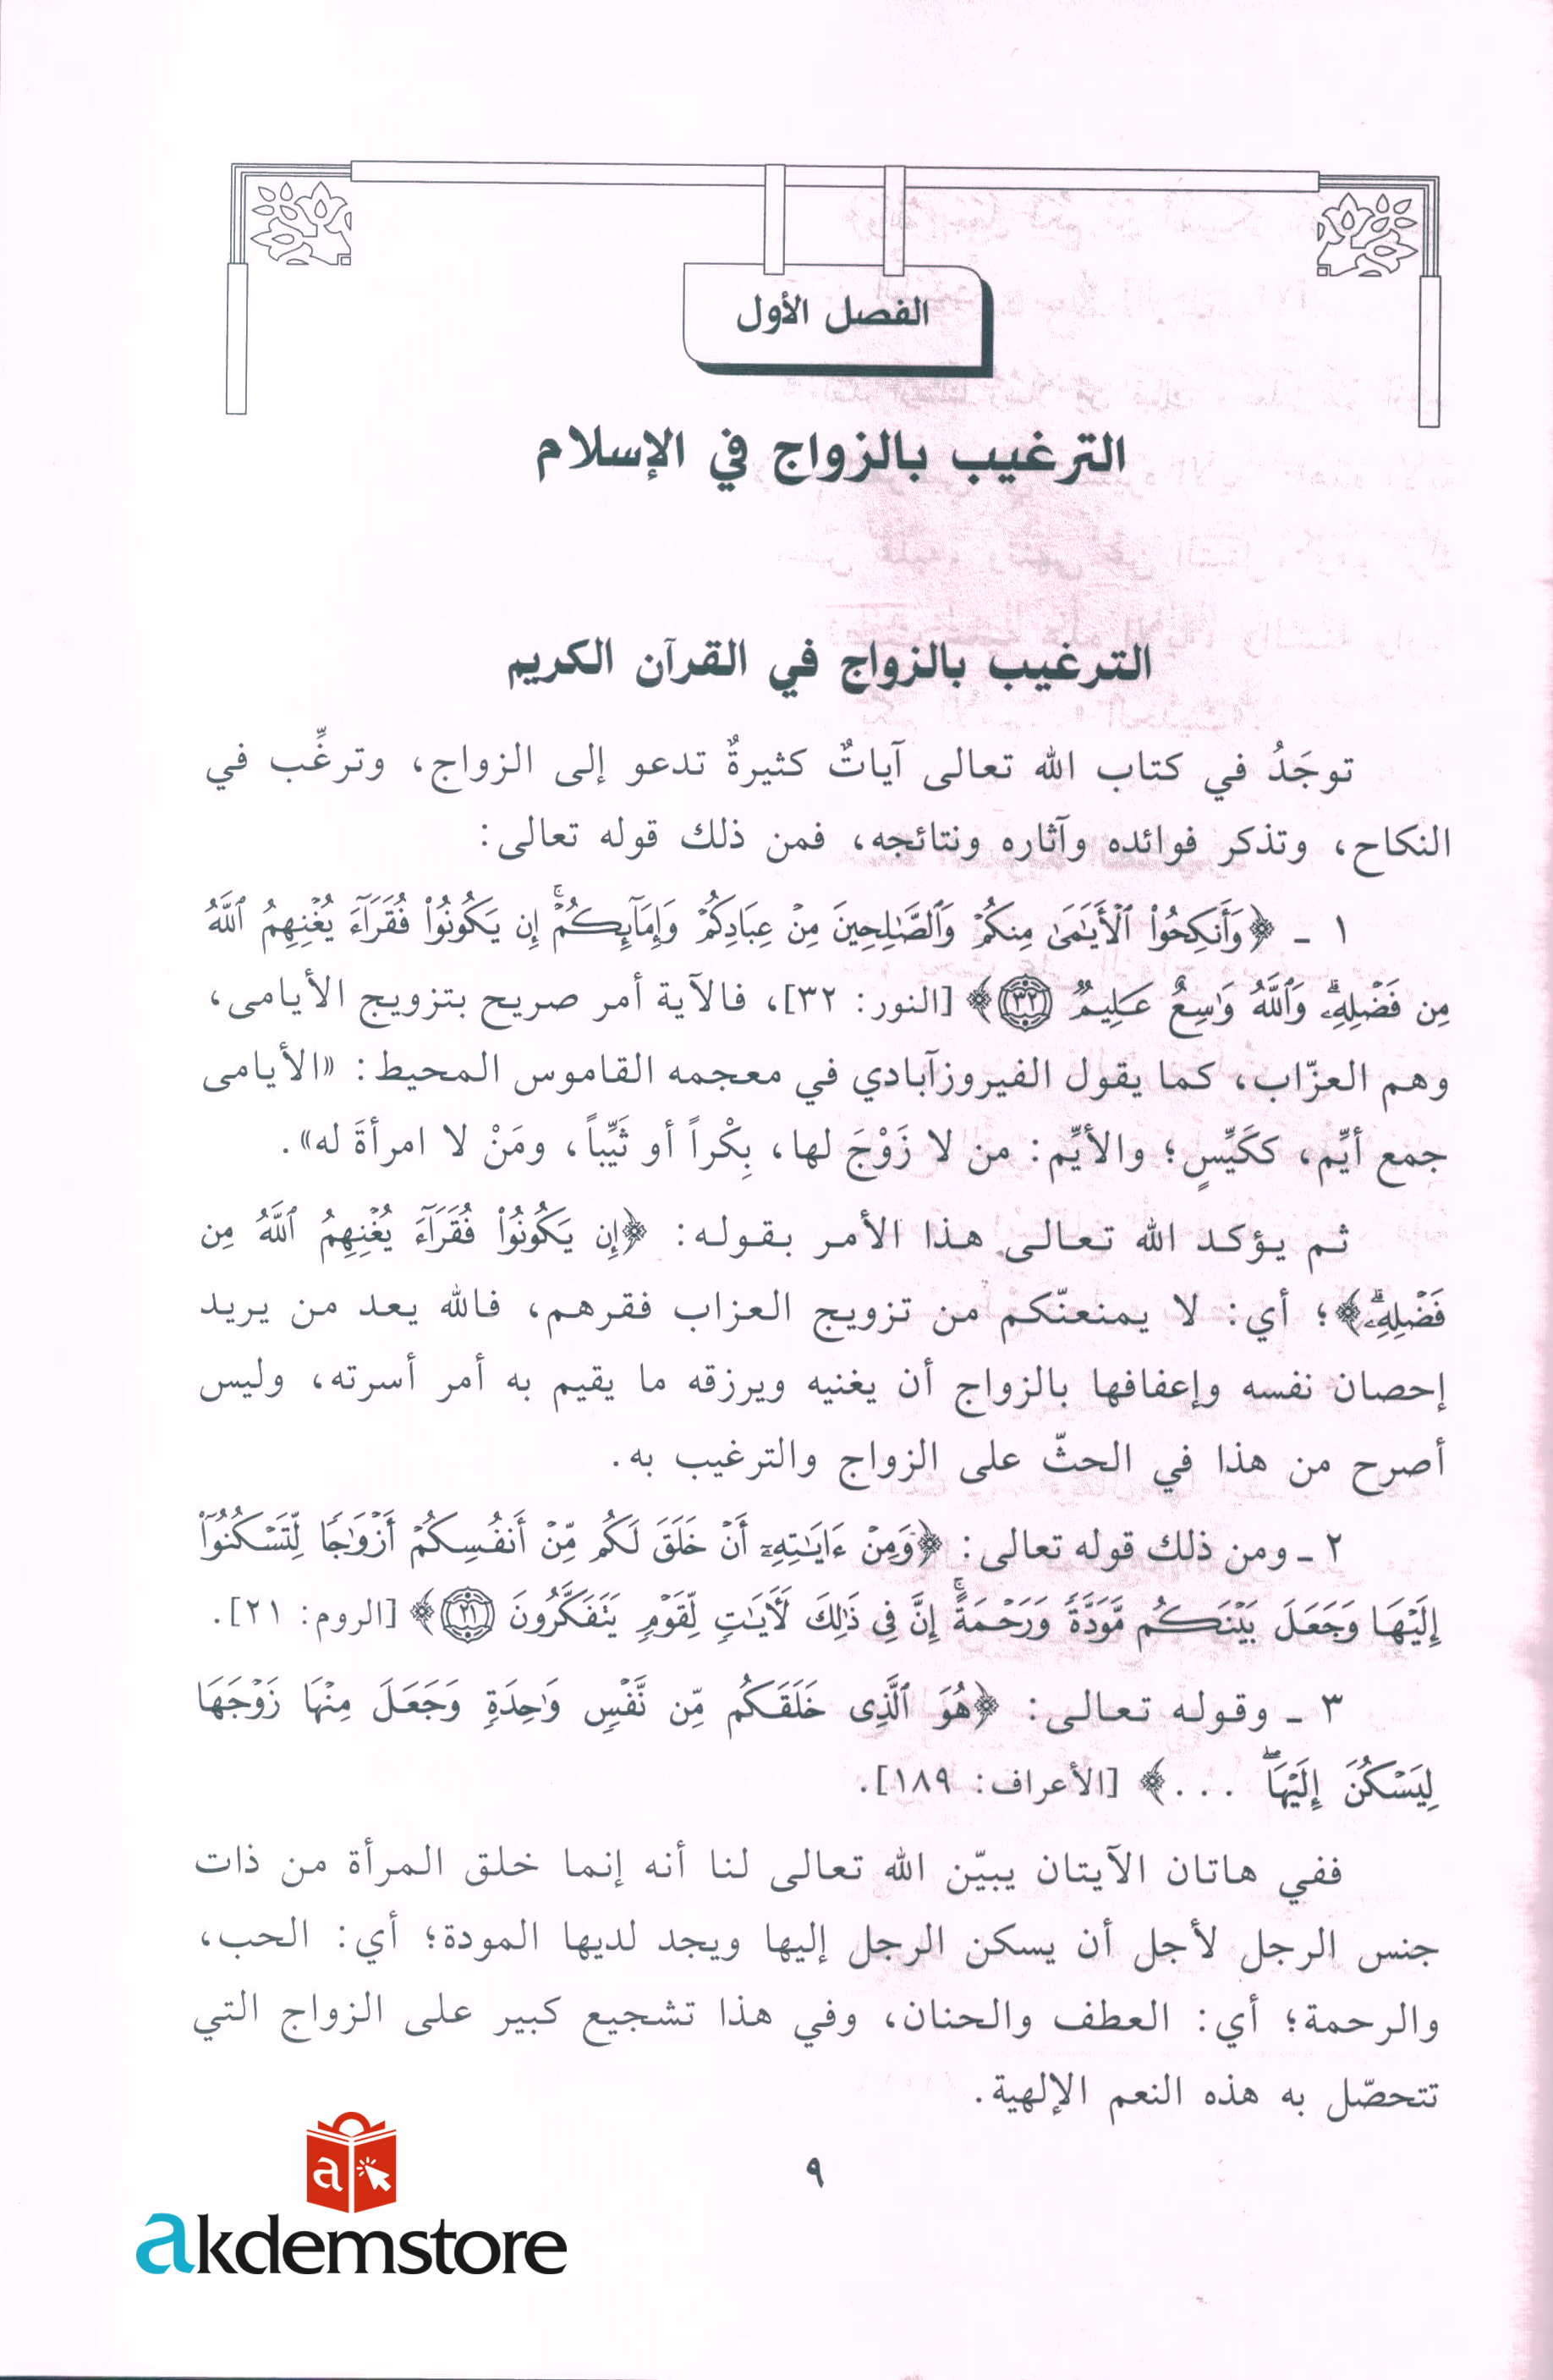 الفصل الأول
الترغيب بالزواج في الإسلام
الترغيب بالزواج في القرآن الكريم
توجَدُ في كتاب الله تعالى آياتٌ كثيرةٌ تدعو إلى الزواج، وترغِّب في
النكاح، وتذكر فوائده وآثاره ونتائجه، فمن ذلك قوله تعالى:
١ ـ ﴿وَأَنكِحُوا۟ ٱلْأَيَـٰمَىٰ مِنكُمْ وَٱلصَّـٰلِحِينَ مِنْ عِبَادِكُمْ وَإِمَآئِكُمْ ۚ إِن يَكُونُوا۟ فُقَرَآءَ يُغْنِهِمُ ٱللَّهُ
مِن فَضْلِهِۦ ۗ وَٱللَّهُ وَٰسِعٌ عَلِيمٌ ٣٢﴾ [النور: ٣٢]، فالآية أمر صريح بتزويج الأيامى،
وهم العزّاب، كما يقول الفيروزآبادي في معجمه القاموس المحيط: «الأيامى
جمع أيِّم، ككَيِّسٍ؛ والأيِّم: من لا زَوْجَ لها، بِكْراً أو ثَيِّباً، ومَنْ لا امرأةَ له».
ثم يؤكد الله تعالى هذا الأمر بقوله: ﴿إِن يَكُونُوا۟ فُقَرَآءَ يُغْنِهِمُ ٱللَّهُ مِن
فَضْلِهِۦ ۗ﴾؛ أي: لا يمنعنّكم من تزويج العزاب فقرهم، فالله يعد من يريد
إحصان نفسه وإعفافها بالزواج أن يغنيه ويرزقه ما يقيم به أمر أسرته، وليس
أصرح من هذا في الحثّ على الزواج والترغيب به.
٢ ـ ومن ذلك قوله تعالى: ﴿وَمِنْ ءَايَـٰتِهِۦٓ أَنْ خَلَقَ لَكُم مِّنْ أَنفُسِكُمْ أَزْوَٰجًا لِّتَسْكُنُوٓا۟
إِلَيْهَا وَجَعَلَ بَيْنَكُم مَّوَدَّةً وَرَحْمَةً ۚ إِنَّ فِى ذَٰلِكَ لَـَٔايَـٰتٍ لِّقَوْمٍ يَتَفَكَّرُونَ ٢١﴾ [الروم: ٢١].
٣ ـ وقوله تعالى: ﴿هُوَ ٱلَّذِى خَلَقَكُم مِّن نَّفْسٍ وَٰحِدَةٍ وَجَعَلَ مِنْهَا زَوْجَهَا
لِيَسْكُنَ إِلَيْهَا ۖ ...﴾ [الأعراف: ١٨٩].
ففي هاتان الآيتان يبيّن الله تعالى لنا أنه إنما خلق المرأة من ذات
جنس الرجل لأجل أن يسكن الرجل إليها ويجد لديها المودة؛ أي: الحب،
والرحمة؛ أي: العطف والحنان، وفي هذا تشجيع كبير على الزواج التي
تتحصّل به هذه النعم الإلهية.
٩
a
akdemstore